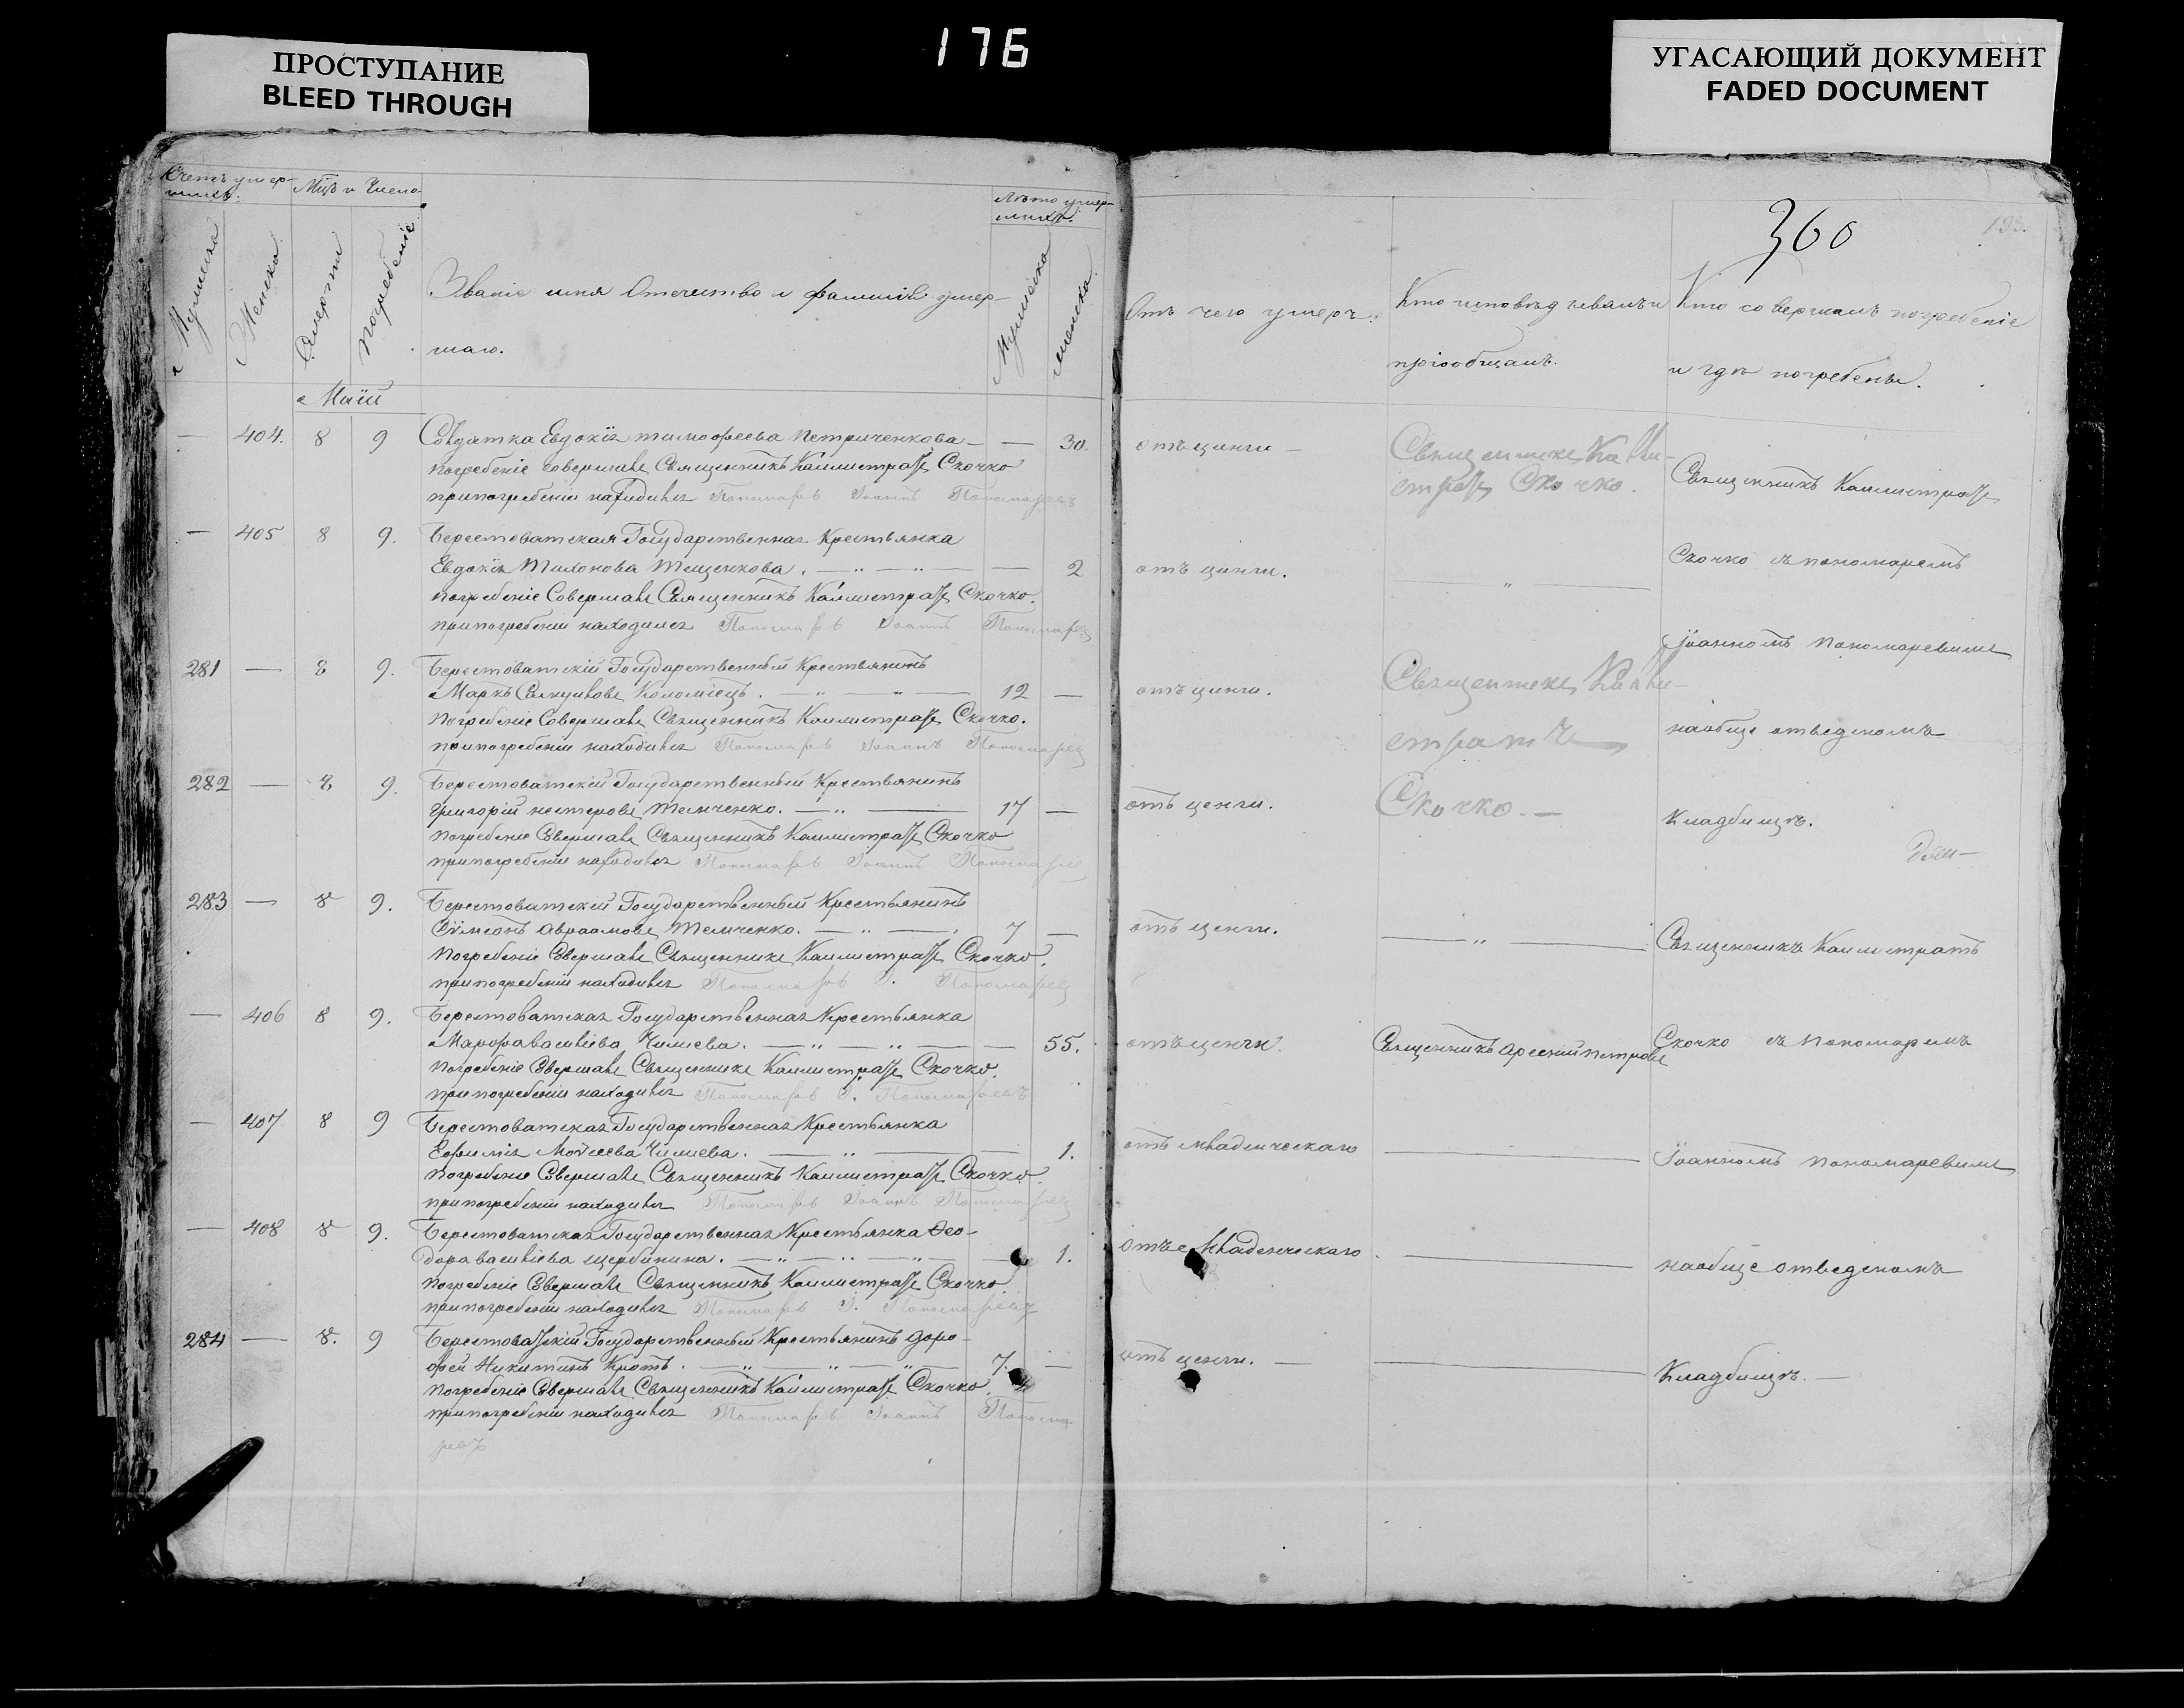 176
ПРОСТУПАНИЕ
BLEED THROUGH
УГАСАЮЩИЙ ДОКУМЕНТ
FADED DOCUMENT
360
Счетъ умер-
шихъ.
Мцъ и Число
Лето умер-
шихъ.
Мужеска
Женска
Смерти
Погребенія
Званіе имя Отечество и фамилія умер-
шаго.
Мужеска
женска
Отъ чего умеръ.
Кто исповедывалъ и
пріобщалъ.
Кто совершалъ погребеніе
и где погребены.
Маій
— 404. 8 9 Солдатка Евдокія тимофеева Петриченкова — — 30. отъ цинги —
погребеніе совершалъ Священникъ Каллистратъ Скочко
при погребеніи находился Пономарь Іоаннъ Пономаревъ
Священникъ Калли-
стратъ Скочко.
Священникъ Каллистратъ
— 405 8 9. Берестоватская Государственная Крестьянка
Евдокія Тихонова Тещенкова. — „ — „ — — 2 отъ цинги. — „ —
погребеніе Совершалъ Священникъ Каллистратъ Скочко.
при погребеніи находился Пономарь Іоаннъ Пономарев
Скочко съ пономаремъ
Іоанномъ Пономаревымъ
281 — 8 9. Берестоватскій Государственный Крестьянинъ
Маркъ Коломіецъ. — „ — „ — 12 — отъ цинги.
погребеніе Совершалъ Священникъ Каллистратъ Скочко.
при погребеніи находился Пономарь Іоаннъ Пономарев
Священникъ Калли-
стратъ
Скочко. —
на обще отведеномъ
282 — 8 9. Берестоватскій Государственный Крестьянинъ
Григорій нестеровъ Темченко. — „ — 17 — отъ ценги.
погребеніе Совершалъ Священникъ Каллистратъ Скочко
при погребеніи находился Пономарь Іоаннъ Пономарев
Кладбище.
283 — 8 9. Берестоватскій Государственный Крестьянинъ
Сѵмеонъ Авраамовъ Темченко. — „ — . 7 — отъ ценги. — „ —
погребеніе Совершалъ Священникъ Каллистратъ Скочко.
при погребеніи находился Пономарь І. Пономарев
Священникъ Каллистратъ
— 406 8 9. Берестоватская Государственная Крестьянка
Марфа васильева Чилиева. — „ — „ — — 55. отъ ценги. Священникъ Арсеній петровъ
погребеніе Совершалъ Священникъ Каллистратъ Скочко.
при погребеніи находился Пономарь І. Пономаревъ
Скочко съ пономаремъ
— 407 8 9 Берестоватская Государственная Крестьянка
Евфимія Моѵсеева Чилиева. — „ — — 1. отъ младенческаго —
погребеніе Совершалъ Священникъ Каллистратъ Скочко.
при погребеніи находился Пономарь Іоаннъ Пономарев
Іоанномъ Пономаревымъ
— 408 8 9. Берестоватская Государственная Крестьянка Ѳео-
дора васильева щербинина. — „ — „ — „ — 1. отъ младенческаго —
погребеніе Совершалъ Священникъ Каллистратъ Скочко
при погребеніи находился Пономарь І. Пономаревъ
на обще отведеномъ
284 — 8. 9 Берестоватскій Государственный Крестьянинъ доро-
фей Никитинъ Кротъ. — „ — „ — „ — 7. — отъ ценги. — —
погребеніе Совершалъ Священникъ Каллистратъ Скочко.
при погребеніи находился Пономарь Іоаннъ Понома
ревъ
Кладбище. —